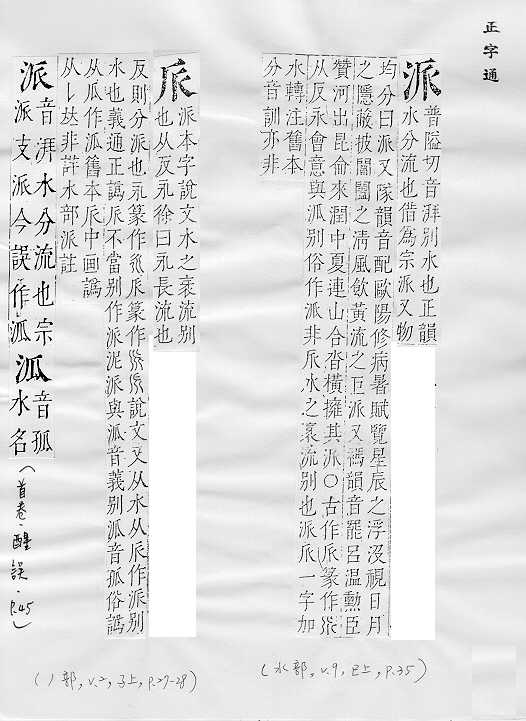 正字通
派 普隘切音湃別水也正韻
水分流也借為宗派又物
均分曰派又隊韻音配歐陽修病暑賦覽星辰之浮沒視日月
之隱蔽披閶闔之清風飲黃流之巨派又禡韻音罷呂温勲臣
贊河出昆侖來潤中夏連山合沓橫擁其派○古作𠂢篆作
从反永會意與泒别俗作派非𠂢水之衺流別也派𠂢一字加
水轉注舊本
分音訓亦非
(水部, v.9, 巳上, p.35)
𠂢 派本字說文水之衺流別
也从反永徐曰永長流也
反則分派也永篆作 𠂢篆作 說文又从水从𠂢作派別
水也義通正譌𠂢不當別作派泥派與泒音義別泒音孤俗譌
从瓜作泒舊本𠂢中画譌
从 非詳水部派註
(丿部, v.2, 子上, p.27-28)
派 音湃水分流也宗
派支派今誤作泒 泒 音孤
水名
(首卷·醒誤·p.45)